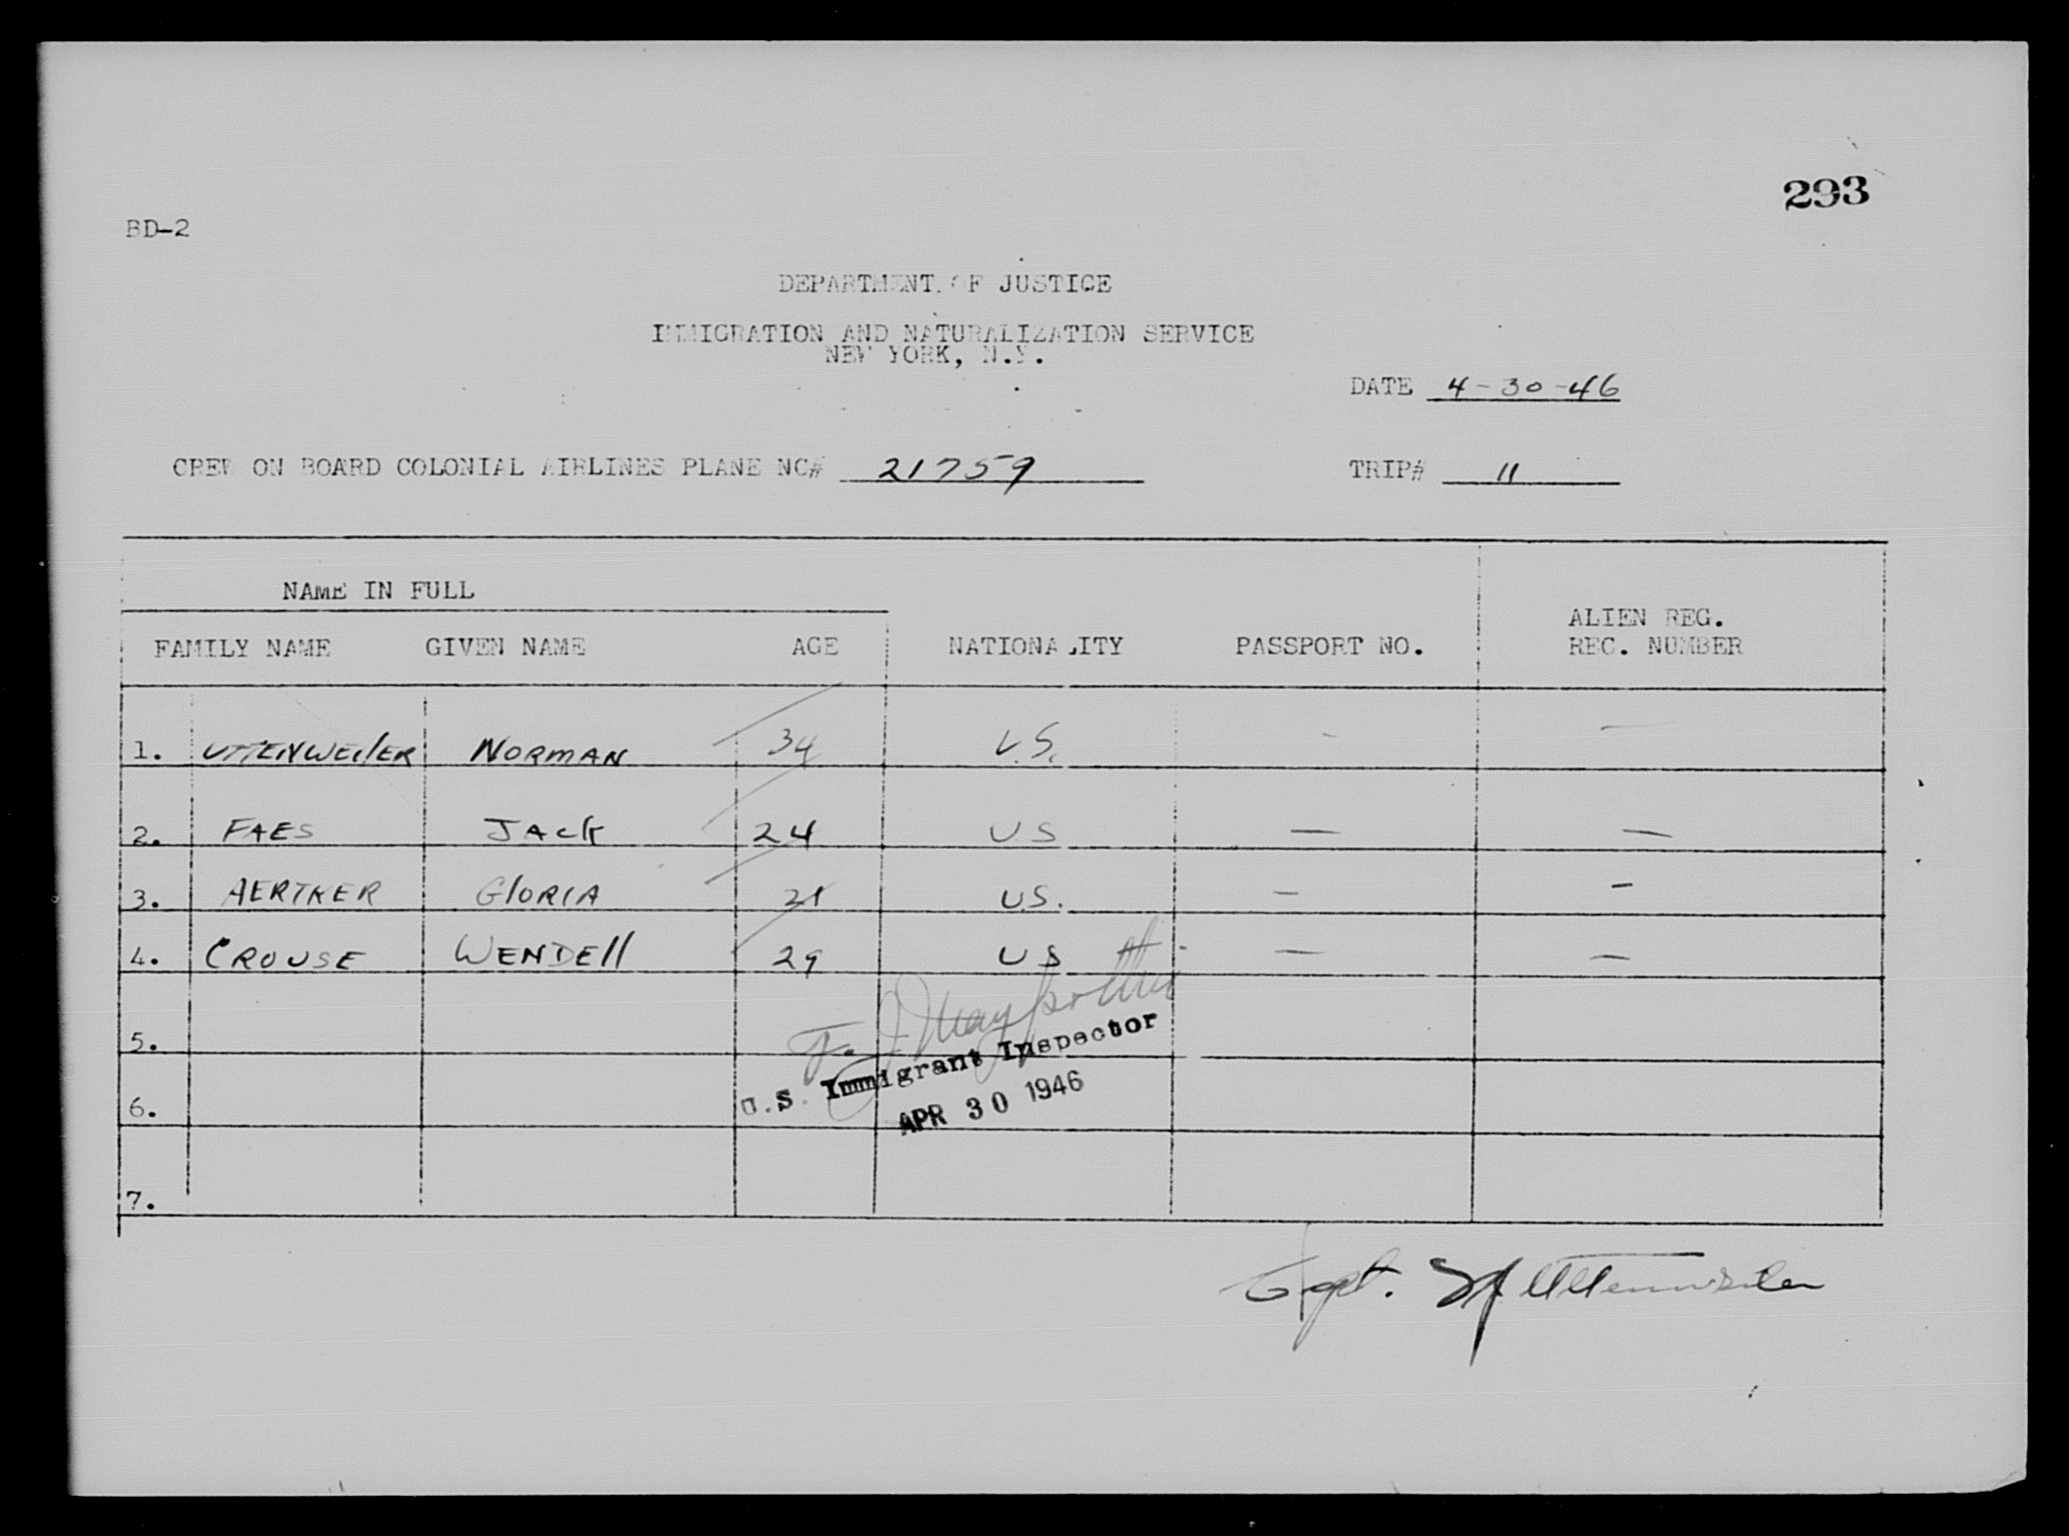 293
BD-2
DEPARTMENT OF JUSTICE
IMMIGRATION AND NATURALIZATION SERVICE
NEW YORK, N.Y.
DATE 4-30-46
CREW ON BOARD COLONIAL AIRLINES PLANE NC# 21759 TRIP# 11
NAME IN FULL
FAMILY NAME GIVEN NAME AGE NATIONALITY PASSPORT NO. ALIEN REG. REC. NUMBER
1. UTTENWEILER NORMAN 34 U.S. - -
2. FAES JACK 24 US - -
3. AERTKER GLORIA 21 U.S. - -
4. CROUSE WENDELL 29 US - -
5.
U.S. Immigrant Inspector
6.
APR 30 1946
7.
Capt. Uttenweiler